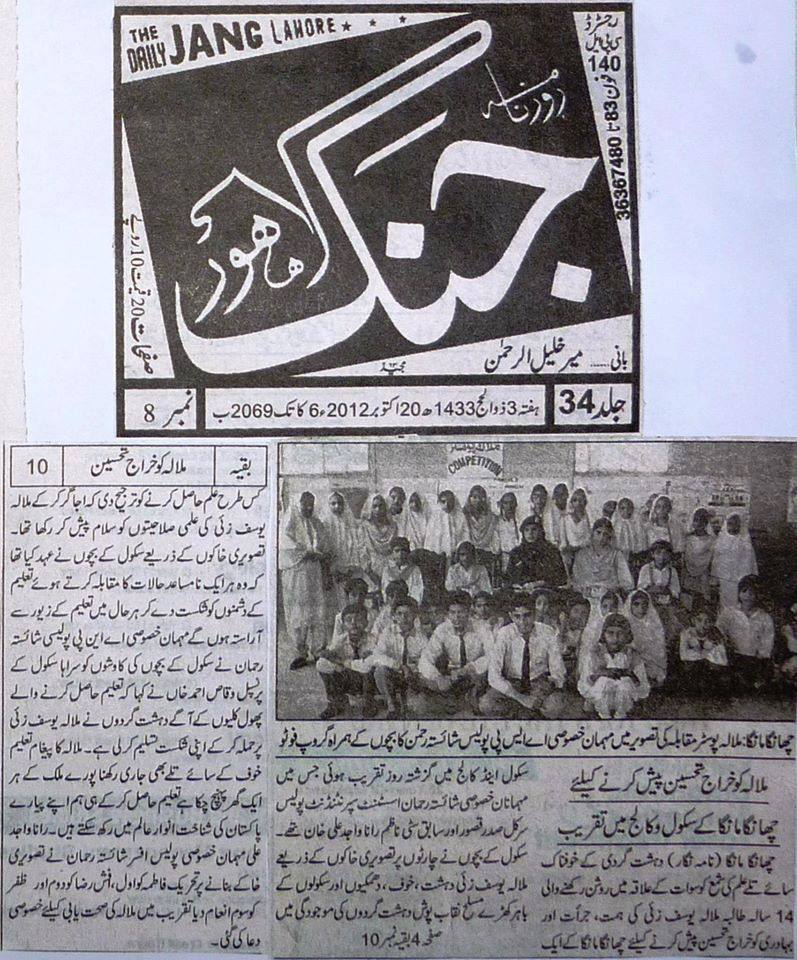 THE DAILY JANG LAHORE
روزنامہ
جنگ
لاہور
رجسٹرڈ
سی پی ایل
140
فون 83 تا 36367480
صفحات 20 قیمت 10 روپے
بانی ...... میر خلیل الرحمٰن
جلد 34
ہفتہ 3 ذوالحج 1433ھ 20 اکتوبر 2012ء 6 کاتک 2069 ب
نمبر 8
COMPETITION
چھانگا مانگا: ملالہ پوسٹر مقابلہ کی تصویر میں مہمان خصوصی اے ایس پی پولیس شائستہ رحمٰن کا بچوں کے ہمراہ گروپ فوٹو
ملالہ کو خراج تحسین پیش کرنے کیلئے
چھانگا مانگا کے سکول و کالج میں تقریب
چھانگا مانگا (نامہ نگار) دہشت گردی کے خوفناک
سائے تلے علم کی شمع کو سوات کے علاقہ میں روشن رکھنے والی
14 سالہ طالبہ ملالہ یوسف زئی کی ہمت، جرأت اور
بہادری کو خراج تحسین پیش کرنے کیلئے چھانگا مانگا کے ایک
سکول اینڈ کالج میں گزشتہ روز تقریب ہوئی جس میں
مہمانان خصوصی شائستہ رحمان اسسٹنٹ سپرنٹنڈنٹ پولیس
سرکل صدر قصور اور سابق سٹی ناظم رانا واجد علی خان تھے۔
سکول کے بچوں نے چارٹوں پر تصویری خاکوں کے ذریعے
ملالہ یوسف زئی دہشت، خوف، دھمکیوں اور سکولوں کے
باہر کھڑے مسلح نقاب پوش دہشت گردوں کی موجودگی میں
صفحہ 4 بقیہ نمبر 10
بقیہ
ملالہ کو خراج تحسین
10
کس طرح علم حاصل کرنے کو ترجیح دی کہ اجاگر کر کے ملالہ
یوسف زئی کی علمی صلاحیتوں کو سلام پیش کر رکھا تھا۔
تصویری خاکوں کے ذریعے سکول کے بچوں نے عہد کیا تھا
کہ وہ ہر ایک نامساعد حالات کا مقابلہ کرتے ہوئے تعلیم
کے دشمنوں کو شکست دے کر ہر حال میں تعلیم کے زیور سے
آراستہ ہوں گے مہمان خصوصی اے این پی پولیسی شائستہ
رحمان نے سکول کے بچوں کی کاوشوں کو سراہا سکول کے
پرنسپل وقاص احمد خاں نے کہا کہ تعلیم حاصل کرنے والے
پھول کلیوں کے آگے دہشت گردوں نے ملالہ یوسف زئی
پر حملہ کر کے اپنی شکست تسلیم کر لی ہے۔ ملالہ کا پیغام تعلیم
خوف کے سائے تلے بھی جاری رکھنا پورے ملک کے ہر
ایک گھر پہنچ چکا ہے تعلیم حاصل کر کے ہی ہم اپنے پیارے
پاکستان کی شناخت انوار عالم میں رکھ سکتے ہیں۔ رانا واجد
علی مہمان خصوصی پولیس افسر شائستہ رحمان نے تصویری
خاکے بنانے پر تحریک فاطمہ کو اول، نقش رضا کو دوم اور ظفر
کو سوم انعام دیا تقریب میں ملالہ کی صحت یابی کیلئے خصوصی
دعا کی گئی۔